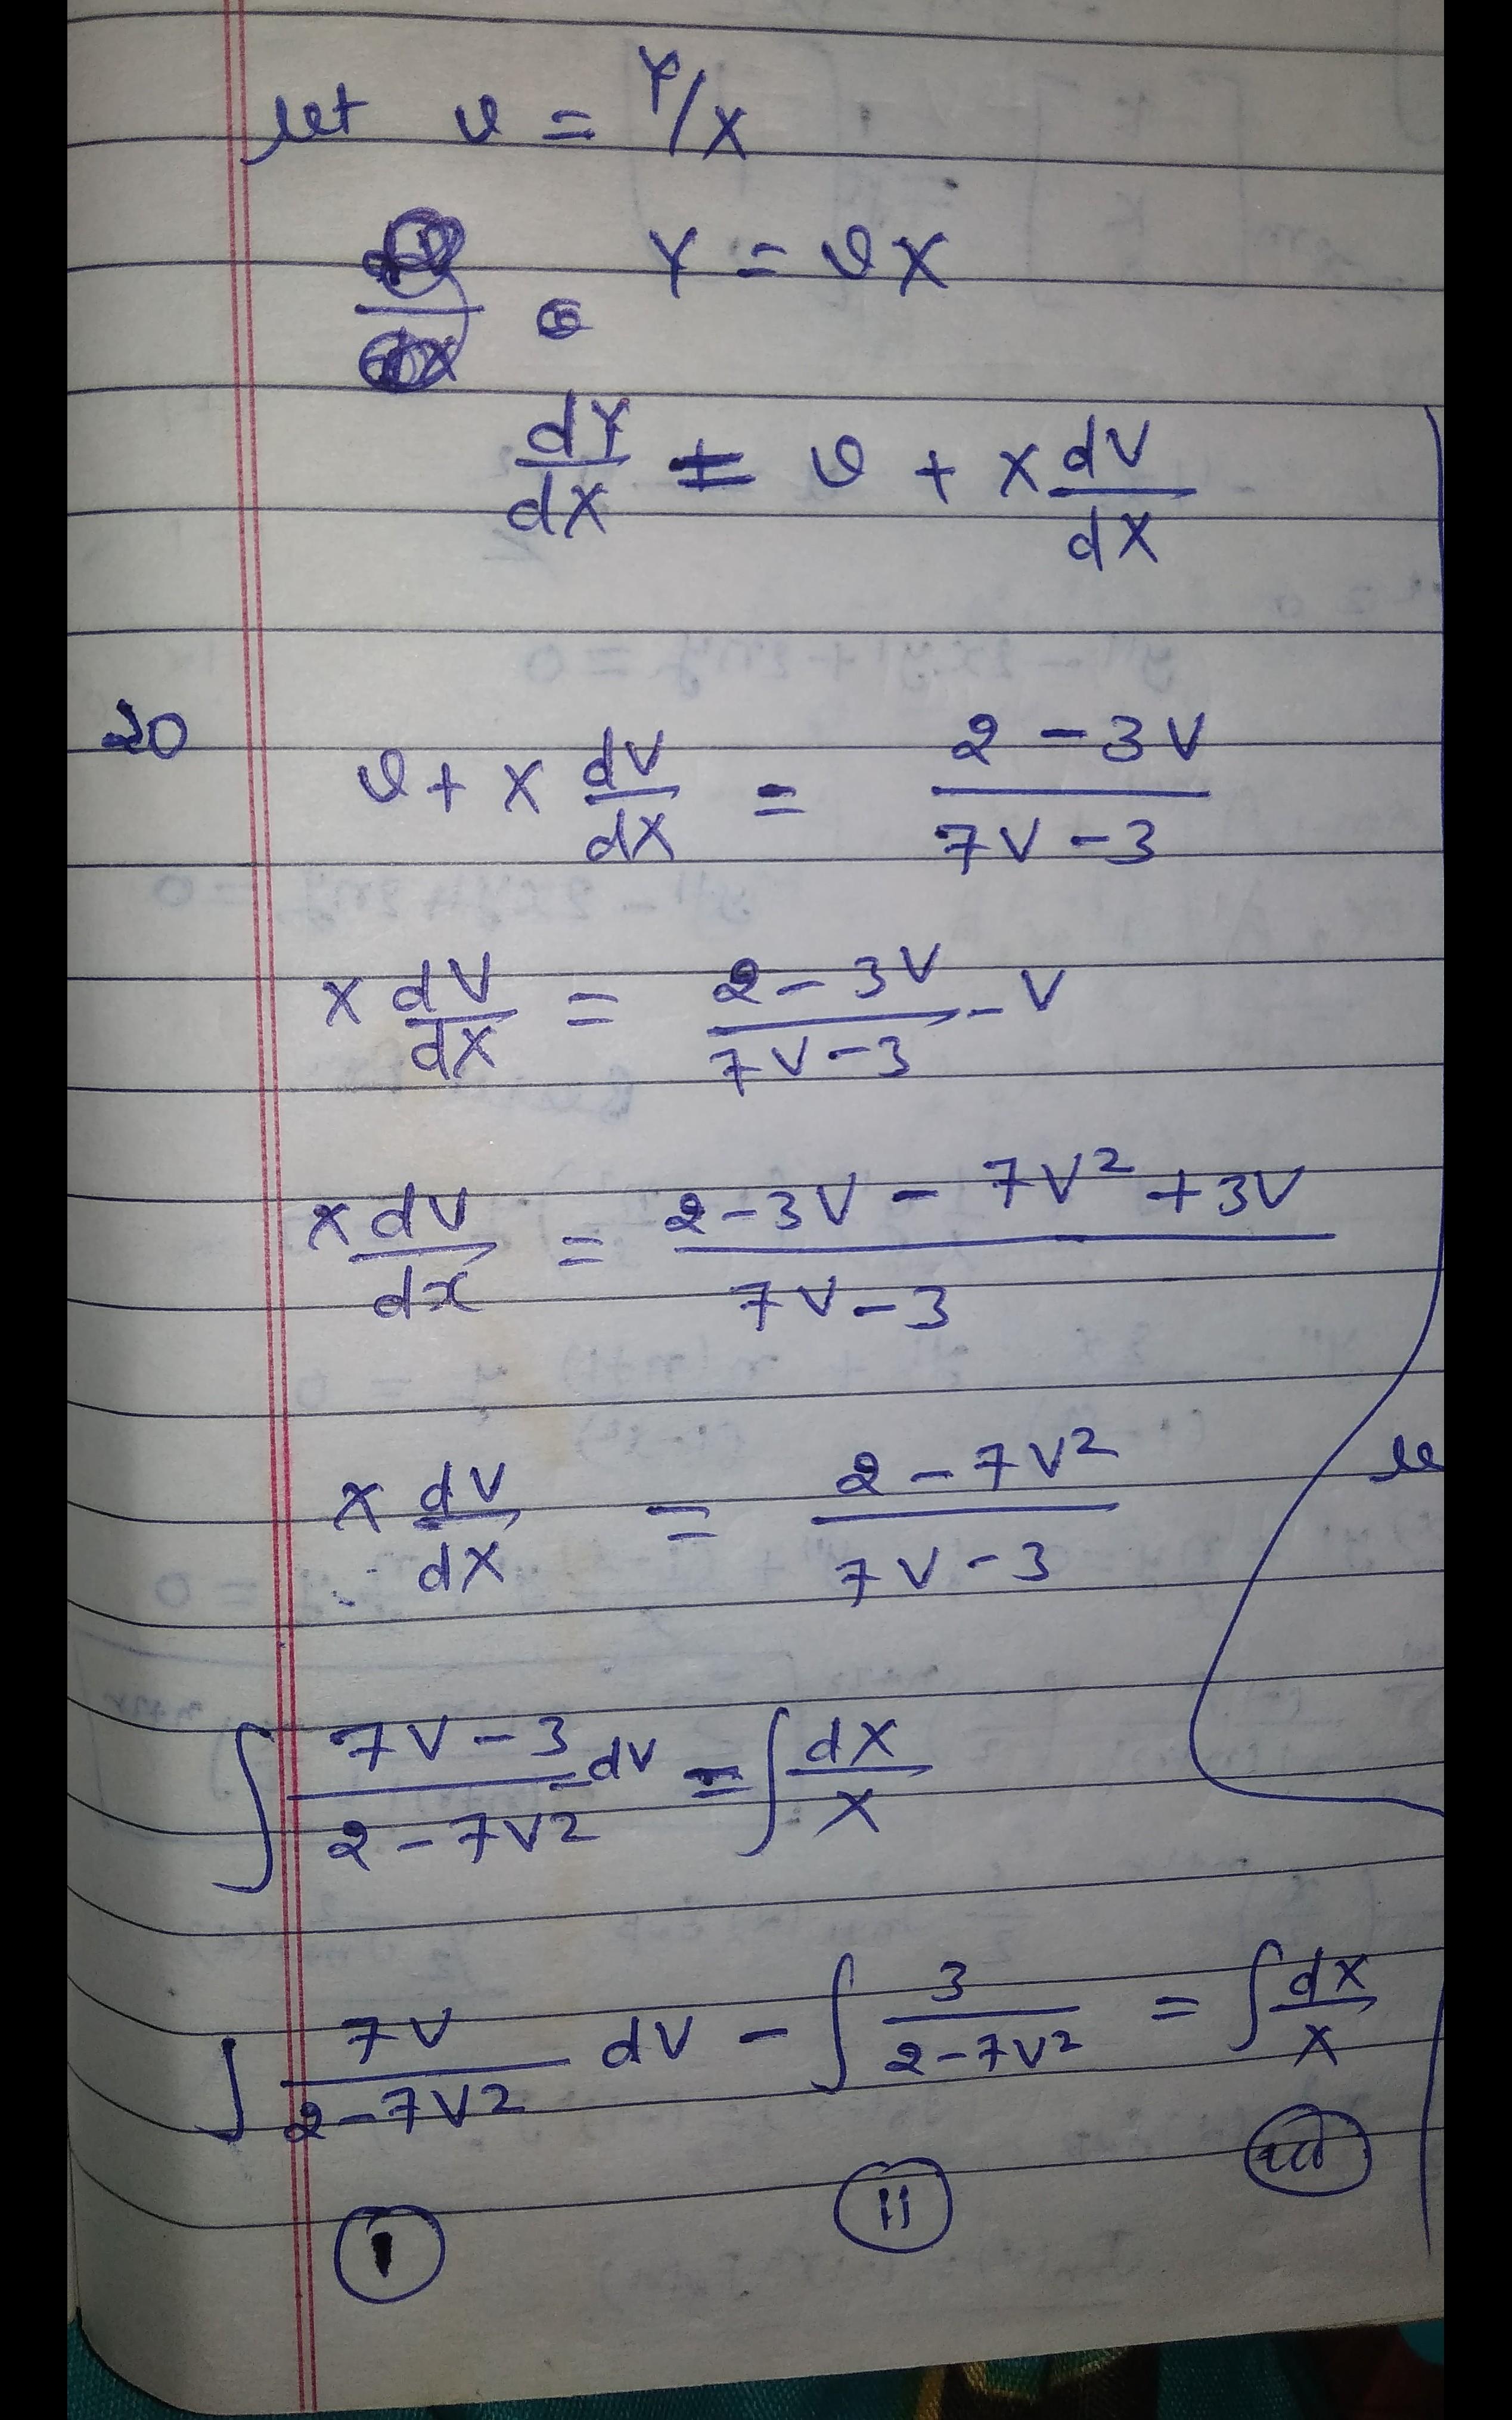 let v = Y/X
Y = vX
dY/dX = v + X dV/dX
20
v + X dV/dX = (2 - 3V)/(7V - 3)
X dV/dX = (2 - 3V)/(7V - 3) - V
X dV/dx = (2 - 3V - 7V² + 3V)/(7V - 3)
X dV/dX = (2 - 7V²)/(7V - 3)
∫ (7V - 3)/(2 - 7V2) dV = ∫ dX/X
∫ 7V/(2 - 7V2) dV - ∫ 3/(2 - 7V²) = ∫ dX/X
I II